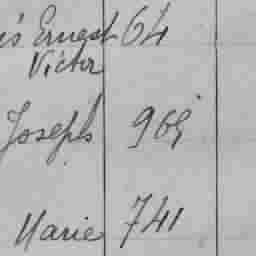 is Ernest 64
Victor
Joseph 969
Marie 741